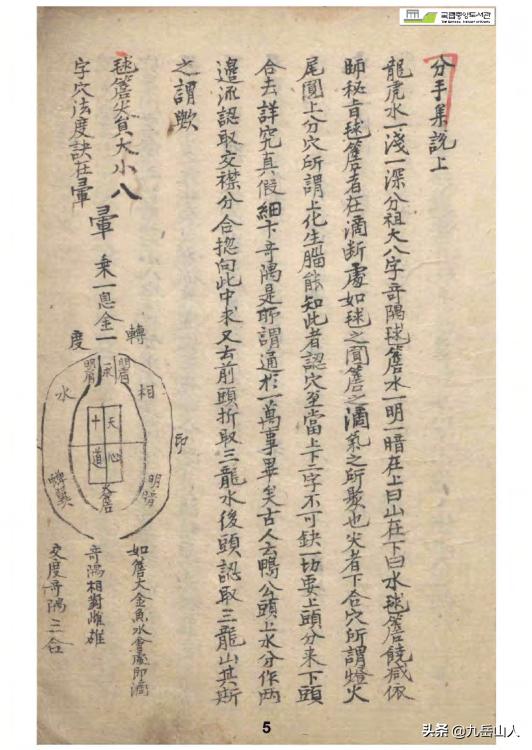 국립중앙도서관
分手集說上
龍虎水一淺一深分祖大八字奇隅毬簷水一明一暗在上曰山在下曰水毬簷饒减依
師秘旨毬簷者在滴断處如毬之圓簷之滴氣之所聚也尖者下合穴所謂燈火
尾圓上分穴所謂上化生腦能知此者認穴至當上下二字不可缺一切要上頭分來下頭
合去詳究真假細卞奇隅是所謂通於一萬事畢矣古人云鴨公頭上水分作兩
邊流認取交襟分合揔向此中求又去前頭折取三龍水後頭認取三龍山其斯
之謂歟
毬簷尖負大小八
字穴法度訣在暈
暈
乘一息金一
轉
度
明肩
一毬
明肩
水
相
印
十
天
道
心
尖簷
蟬翼
明暗
如簷大金魚水會處即滴
奇隅相對雌雄
交度奇隅三合
5
头条 @九岳山人